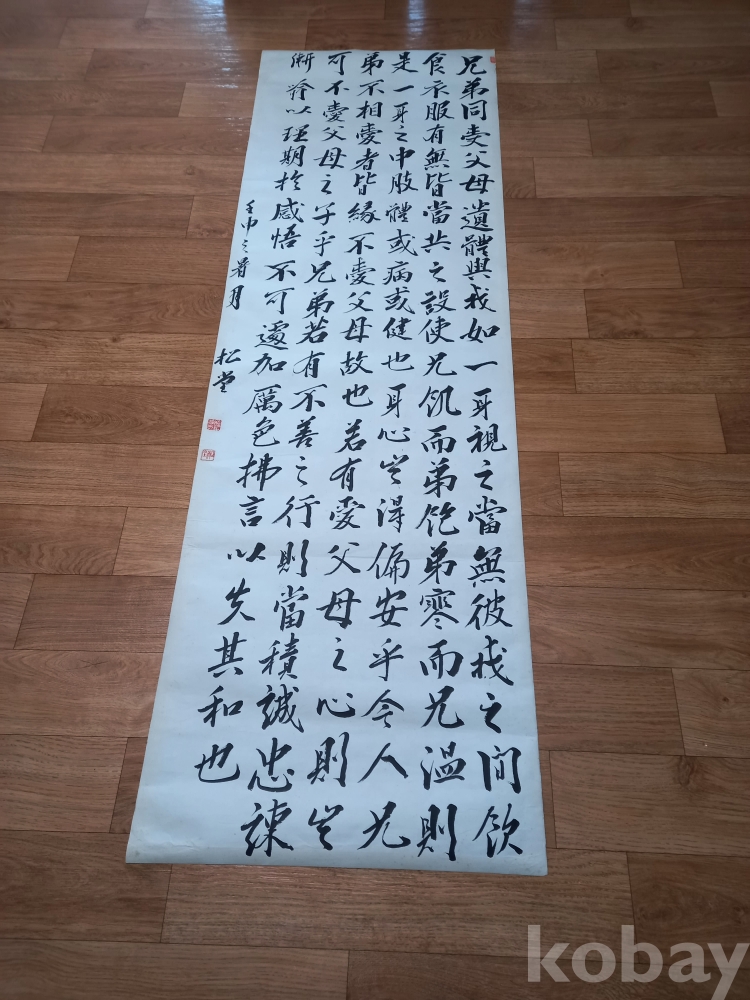 兄弟同受父母遺體與我如一身視之當無彼我之間飲
食衣服有無皆當共之設使兄飢而弟飽弟寒而兄溫則
是一身之中肢體或病或健也身心豈得偏安乎今人兄
弟不相愛者皆緣不愛父母故也若有愛父母之心則豈
可不愛父母之子乎兄弟若有不善之行則當積誠忠諫
漸喩以理期於感悟不可遽加厲色拂言以失其和也
壬申之暑月 松堂
kobay